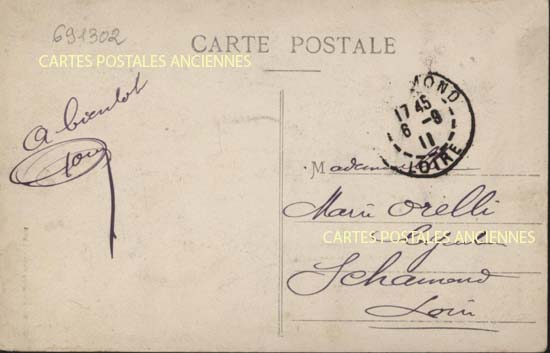 691302
CARTE POSTALE
CARTES POSTALES ANCIENNES
MOND
17 45
6 - 9
11
LOIRE
A bientot
Mademoiselle
Marie Orelli
CARTES POSTALES ANCIENNES
St Chamond
Loire